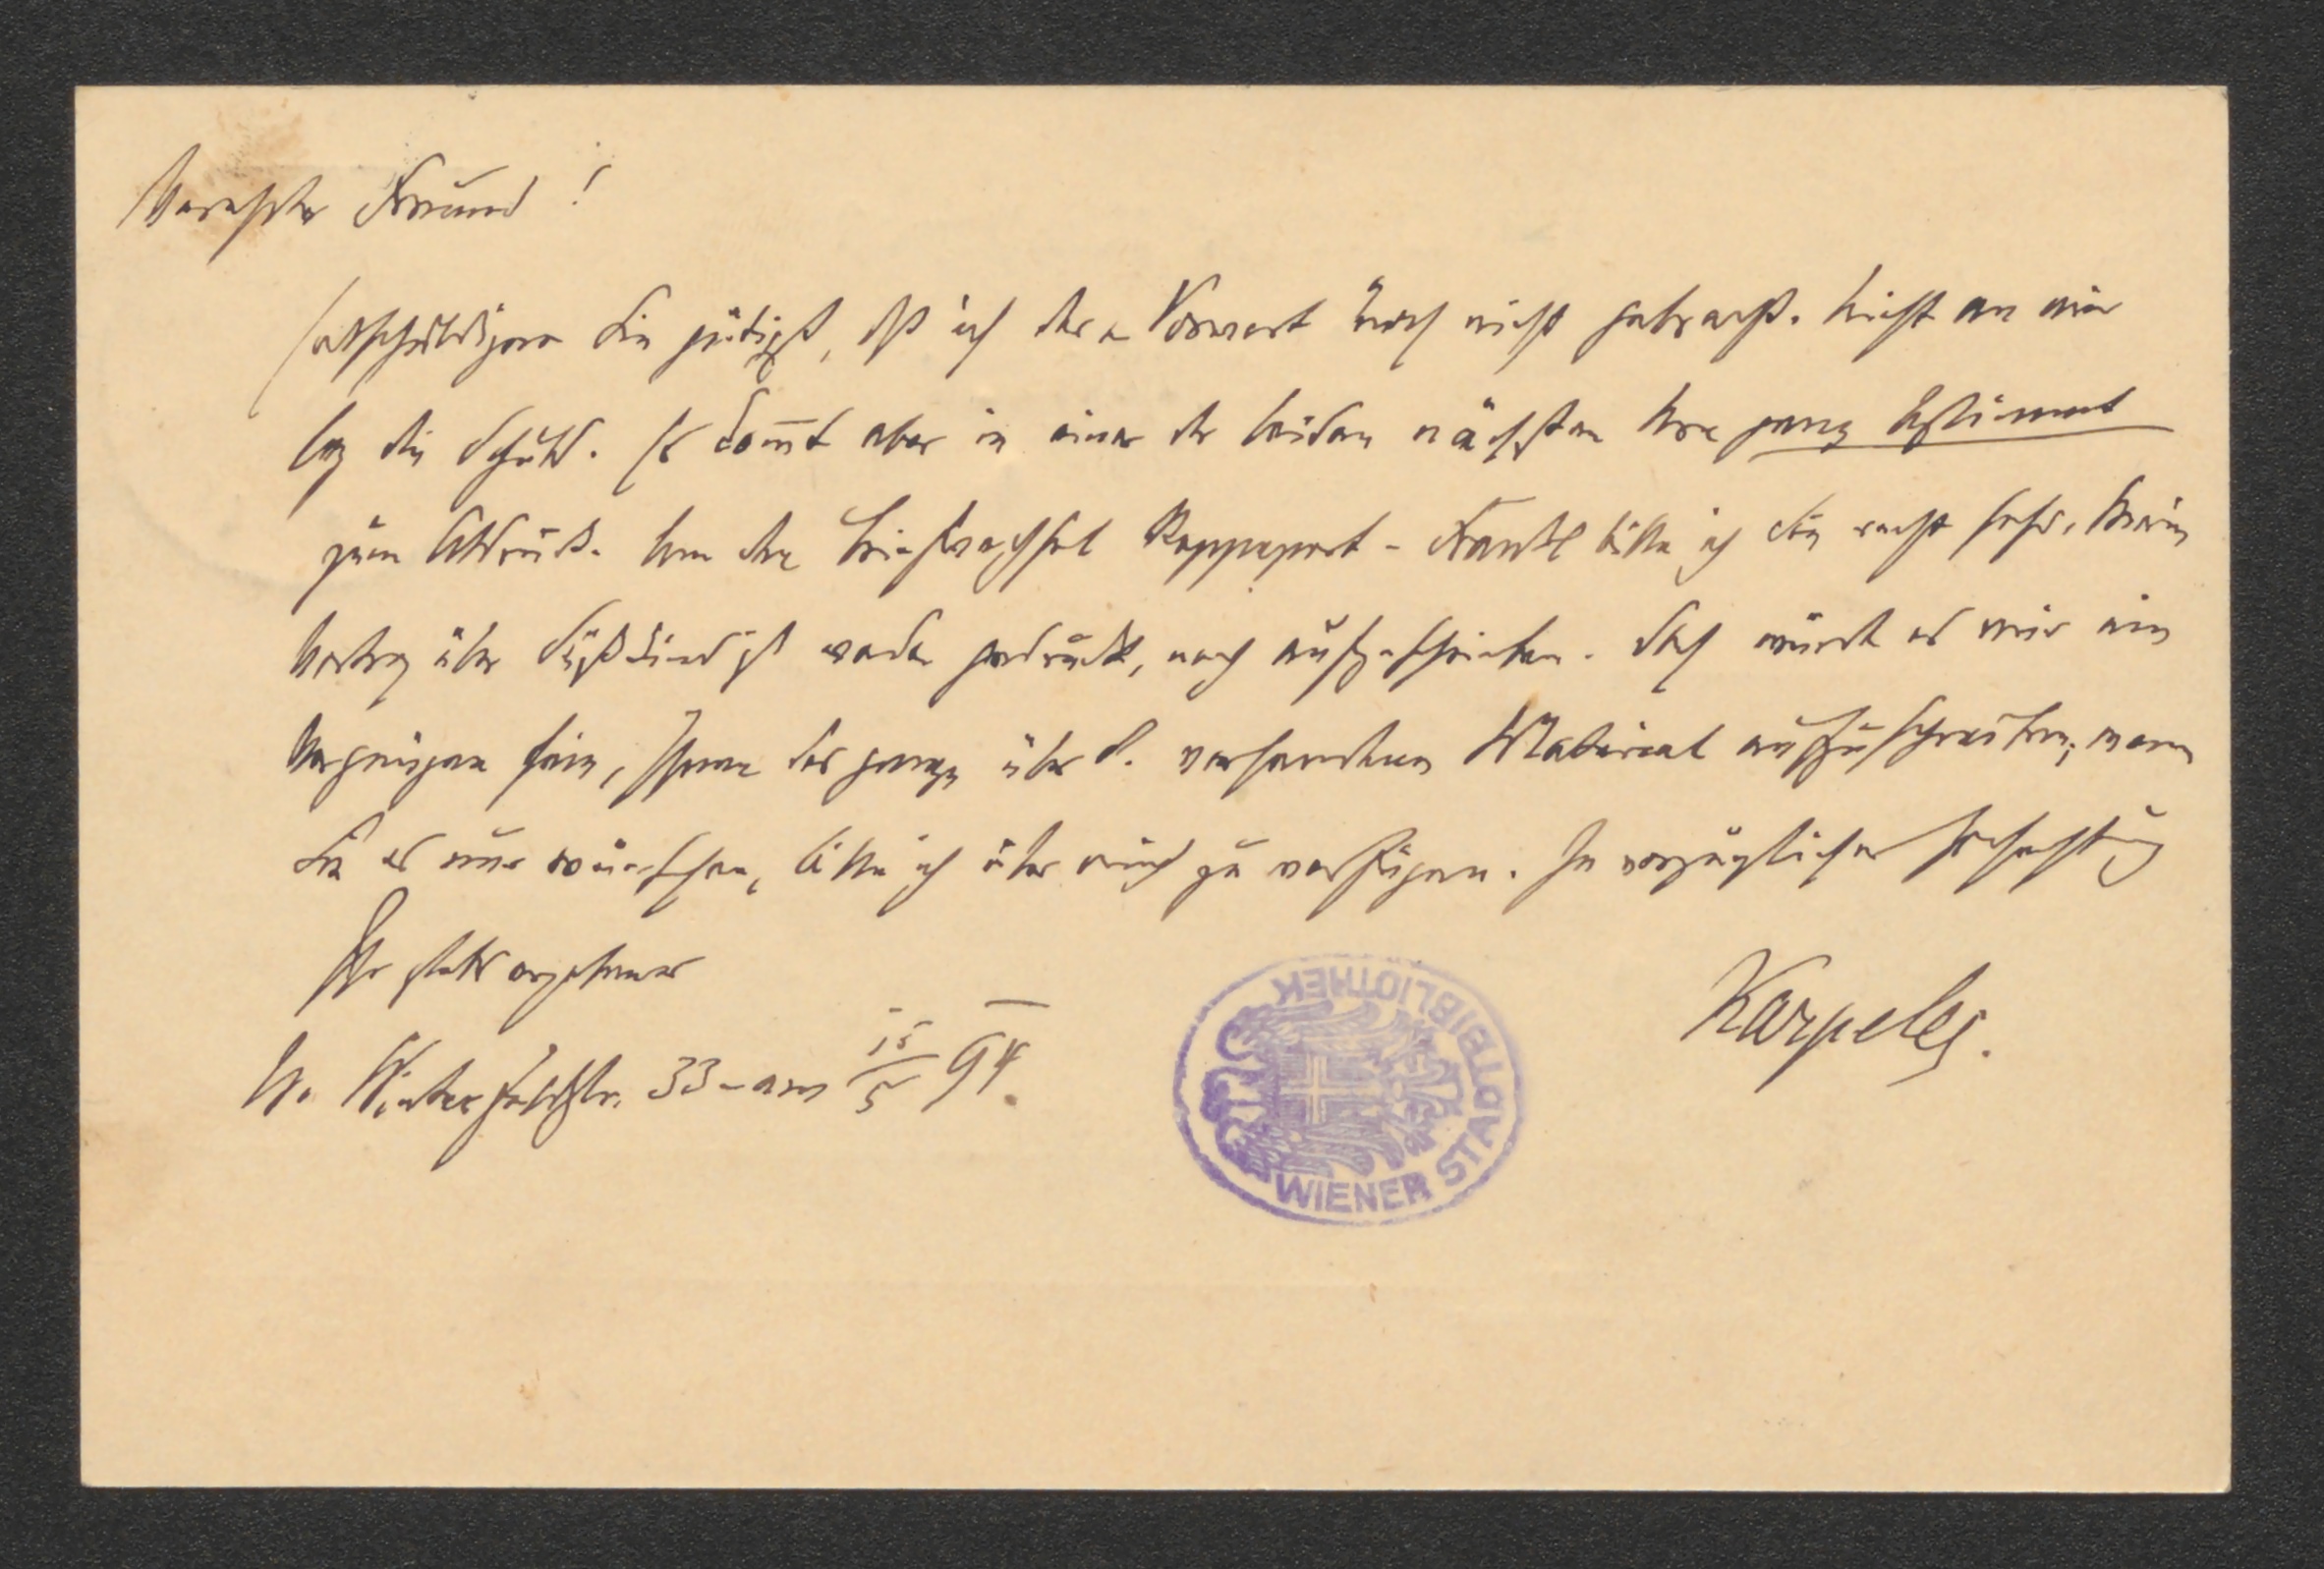 Verehrter Freund!
Entschuldigen Sie gütigst, dß ich den Vorwort noch nicht gebracht. Nicht an mir
lag die Schuld. Es kom̅t aber in einer der beiden nächsten Nrn ganz bestimmt
zum Abdruck. Um den Briefwechsel Rappaport - Frankl bitte ich Sie recht sehr. Mein
Vortrag über Süßkind ist weder gedruckt, noch aufgeschrieben. Doch würde es mir ein
Vergnügen sein, Ihnen das ganze über S. vorhandene Material aufzuschreiben; wenn
Sie es nur wünschen, bitte ich über mich zu verfügen. In vorzüglicher Hochachtung
Ihr stets ergebener
Karpeles.
W. Winterfeldtstr. 33 - am 15/5 94.
WIENER STADTBIBLIOTHEK